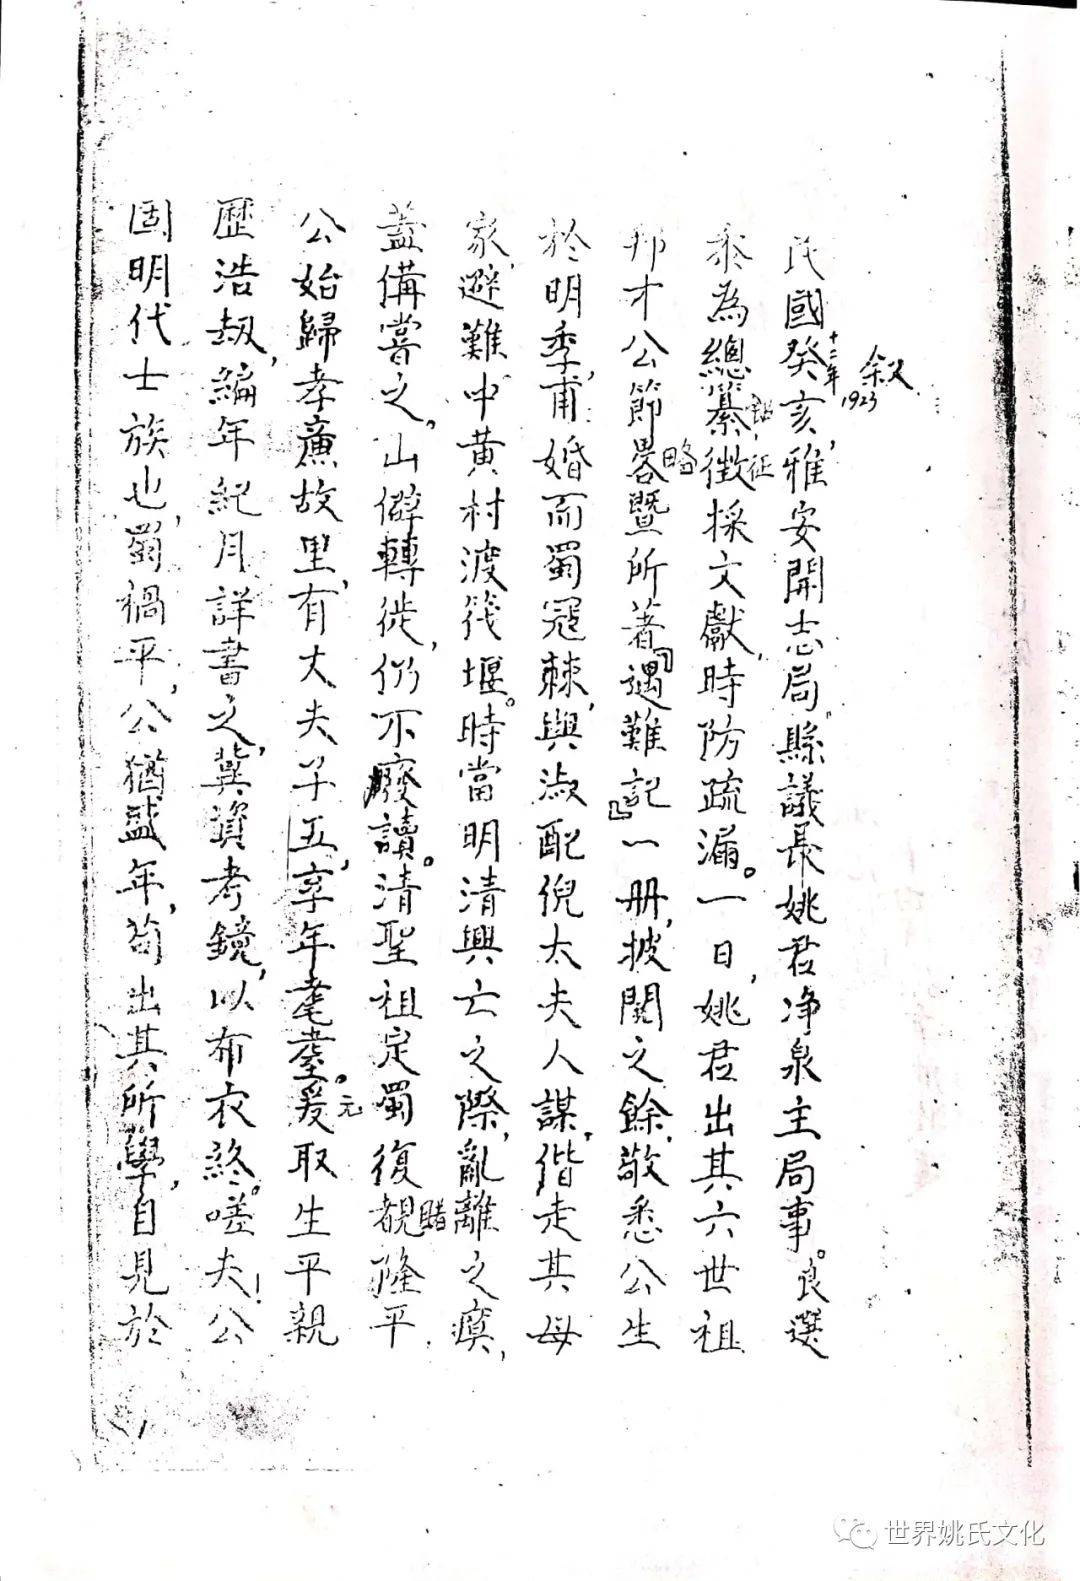 叙
十二年
1923
民國癸亥,雅安開志局,縣議長姚君净泉主局事。良選
忝為總纂,徵採文獻,時防疏漏。一日,姚君出其六世祖
征
邦才公節畧暨所著『遇難記』一册,披閱之餘,敬悉公生
略
於明季,甫婚而蜀寇棘,與淑配倪太夫人謀,偕走其母
家,避難中黄村渡筏堰。時當明清興亡之際,亂離之瘼,
蓋備嘗之。山僻轉徙,仍不廢讀。清聖祖定蜀復覩隆平
睹
公始歸孝亷故里,有丈夫子五,享年耄耋。爰取生平親
元
歷浩刼,編年紀月,詳書之,冀資考鏡,以布衣終。嗟夫!公
固明代士族也,蜀禍平,公猶盛年,苟出其所學,自見於
1
世界姚氏文化